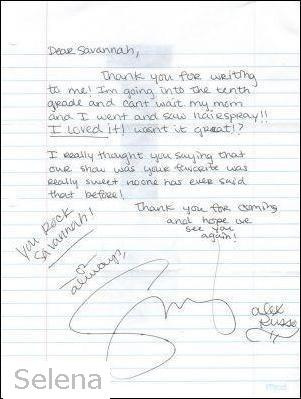 Dear Savannah,
Thank you for writing
to me! Im going into the tenth
grade and cant wait my mom
and I went and saw hairspray!!
I loved it! wasnt it great!?
I really thought you saying that
our show was your favorite was
really sweet noone has ever said
that before!
Thank you for coming
and hope we
see you
again!
You Rock
Savannah!
always,
alex
Russo
Selena